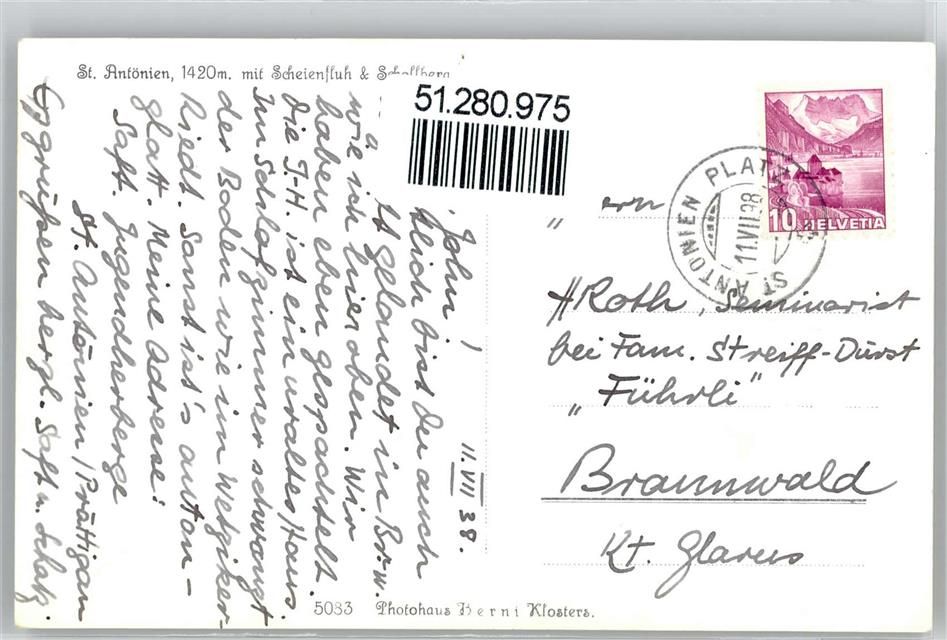 St. Antönien, 1420m. mit Scheienfluh &
51.280.975
11.VII 38.
John!
lich bist Du auch
gelandet in Br.w.
wie ich hier oben. Wir
haben eben gespachtelt.
Die J-H. ist ein uraltes Haus.
Im Schlafzimmer schwangt
der Boden wie im Wetziker-
Riedt. Sonst ist's
glatt. Meine Adresse:
Saft. Jugendherberge
St. Antönien / Prättigau
hergl. Saft u. Schatz.
ST. ANTÖNIEN PLATZ
11.VII.38
10 HELVETIA
ern
H Roth, Seminarist
bei Fam. Streiff-Durst
„Führli"
Braunwald
Kt. Glarus
5083 Photohaus Berni Klosters.